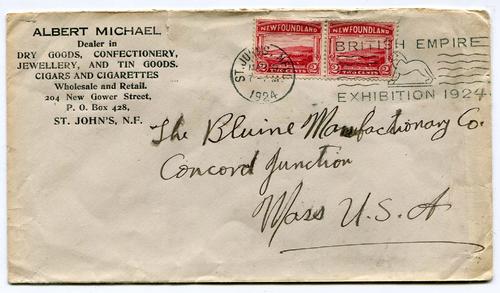 ALBERT MICHAEL
Dealer in
DRY GOODS, CONFECTIONERY,
JEWELLERY, AND TIN GOODS.
CIGARS AND CIGARETTES
Wholesale and Retail.
204 New Gower Street,
P. O. Box 428,
ST. JOHN'S, N.F.
NEWFOUNDLAND NEWFOUNDLAND
2 TWO CENTS 2 2 TWO CENTS 2
ST. JOHN'S
1924
BRITISH EMPIRE
EXHIBITION 1924
The Bluine Manufactionary Co.
Concord Junction
Mass U.S.A